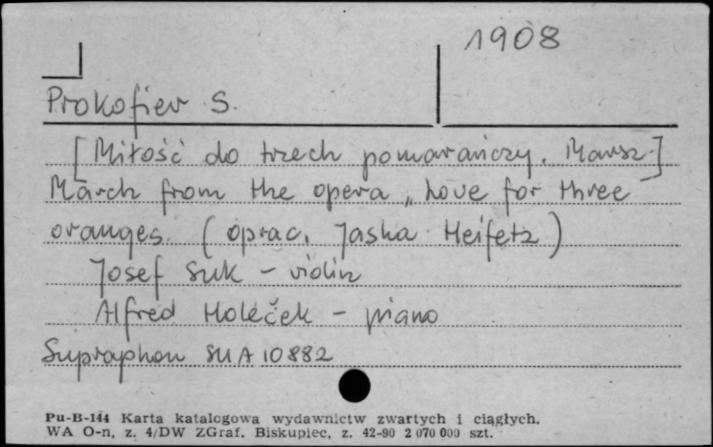 1908
Prokofiev S.
[Miłość do trzech pomarańczy. Marsz]
March from the opera „Love for three
oranges. (oprac. Jasha Heifetz)
Josef Suk - violin
Alfred Holeček - piano
Supraphon SUA 10882
Pu-B-144 Karta katalogowa wydawnictw zwartych i ciągłych.
WA O-n, z. 4/DW ZGraf. Biskupiec, z. 42-90 2 070 000 szt.